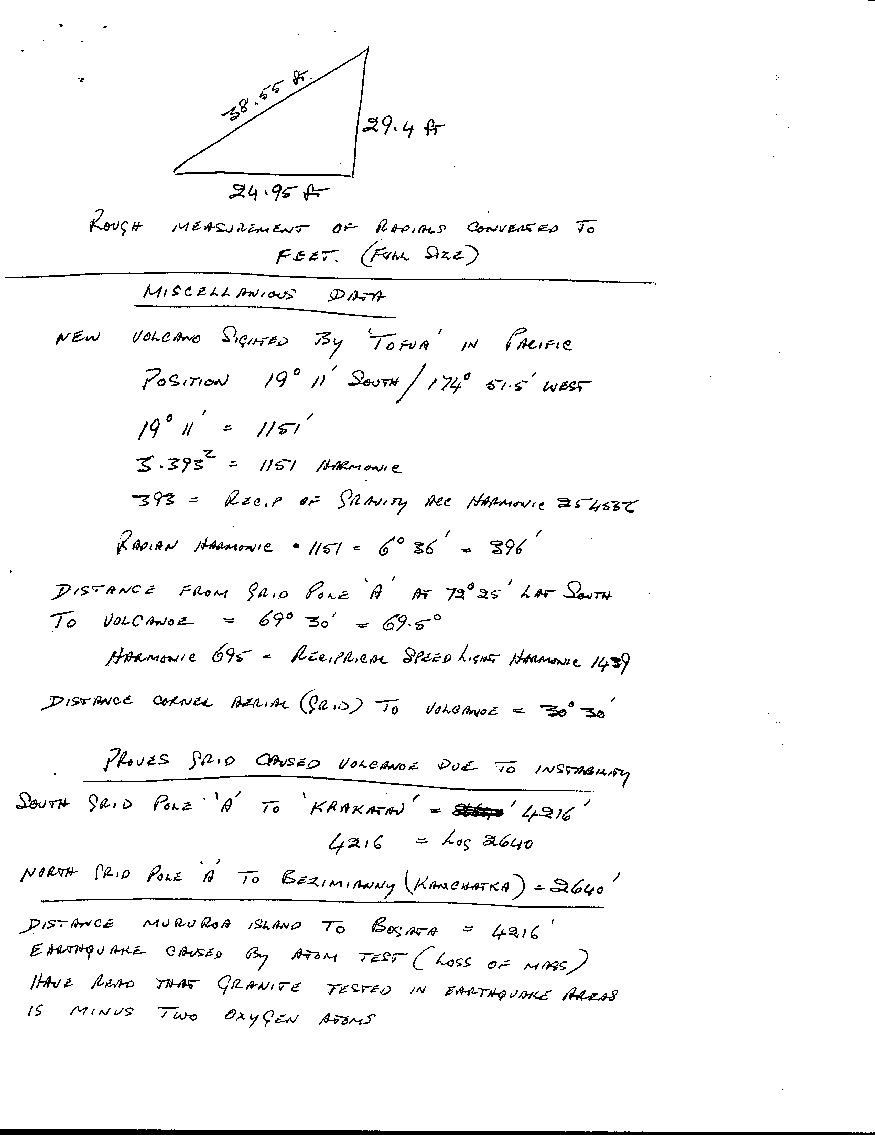 38.55 ft.
29.4 ft
24.95 ft
ROUGH MEASUREMENT OF RADIALS CONVERTED TO
FEET. (FULL SIZE)
MISCELLANIOUS DATA
NEW VOLCANO SIGHTED BY 'TOFUA' IN PACIFIC
POSITION 19° 11' SOUTH / 174° 51.5' WEST
19° 11' = 1151'
3.393² = 1151 HARMONIC
393 = RECIP OF GRAVITY ACC HARMONIC 254535
RADIAN HARMONIC • 1151 = 6° 36' = 396'
DISTANCE FROM GRID POLE 'A' AT 72° 25' LAT SOUTH
TO VOLCANOE = 69° 30' = 69.5°
HARMONIC 695 = RECIPRICAL SPEED LIGHT HARMONIC 1439
DISTANCE CORNER AERIAL (GRID) TO VOLCANOE = 30° 30'
PROVES GRID CAUSED VOLCANOE DUE TO INSTABILITY
SOUTH GRID POLE 'A' TO 'KRAKATAU' = ' 4216'
4216 = LOG 2640
NORTH GRID POLE 'A' TO BEZIMIANNY (KAMCHATKA) = 2640'
DISTANCE MURUROA ISLAND TO BOGATA = 4216'
EARTHQUAKE CAUSED BY ATOM TEST (LOSS OF MASS)
HAVE READ THAT GRANITE TESTED IN EARTHQUAKE AREAS
IS MINUS TWO OXYGEN ATOMS